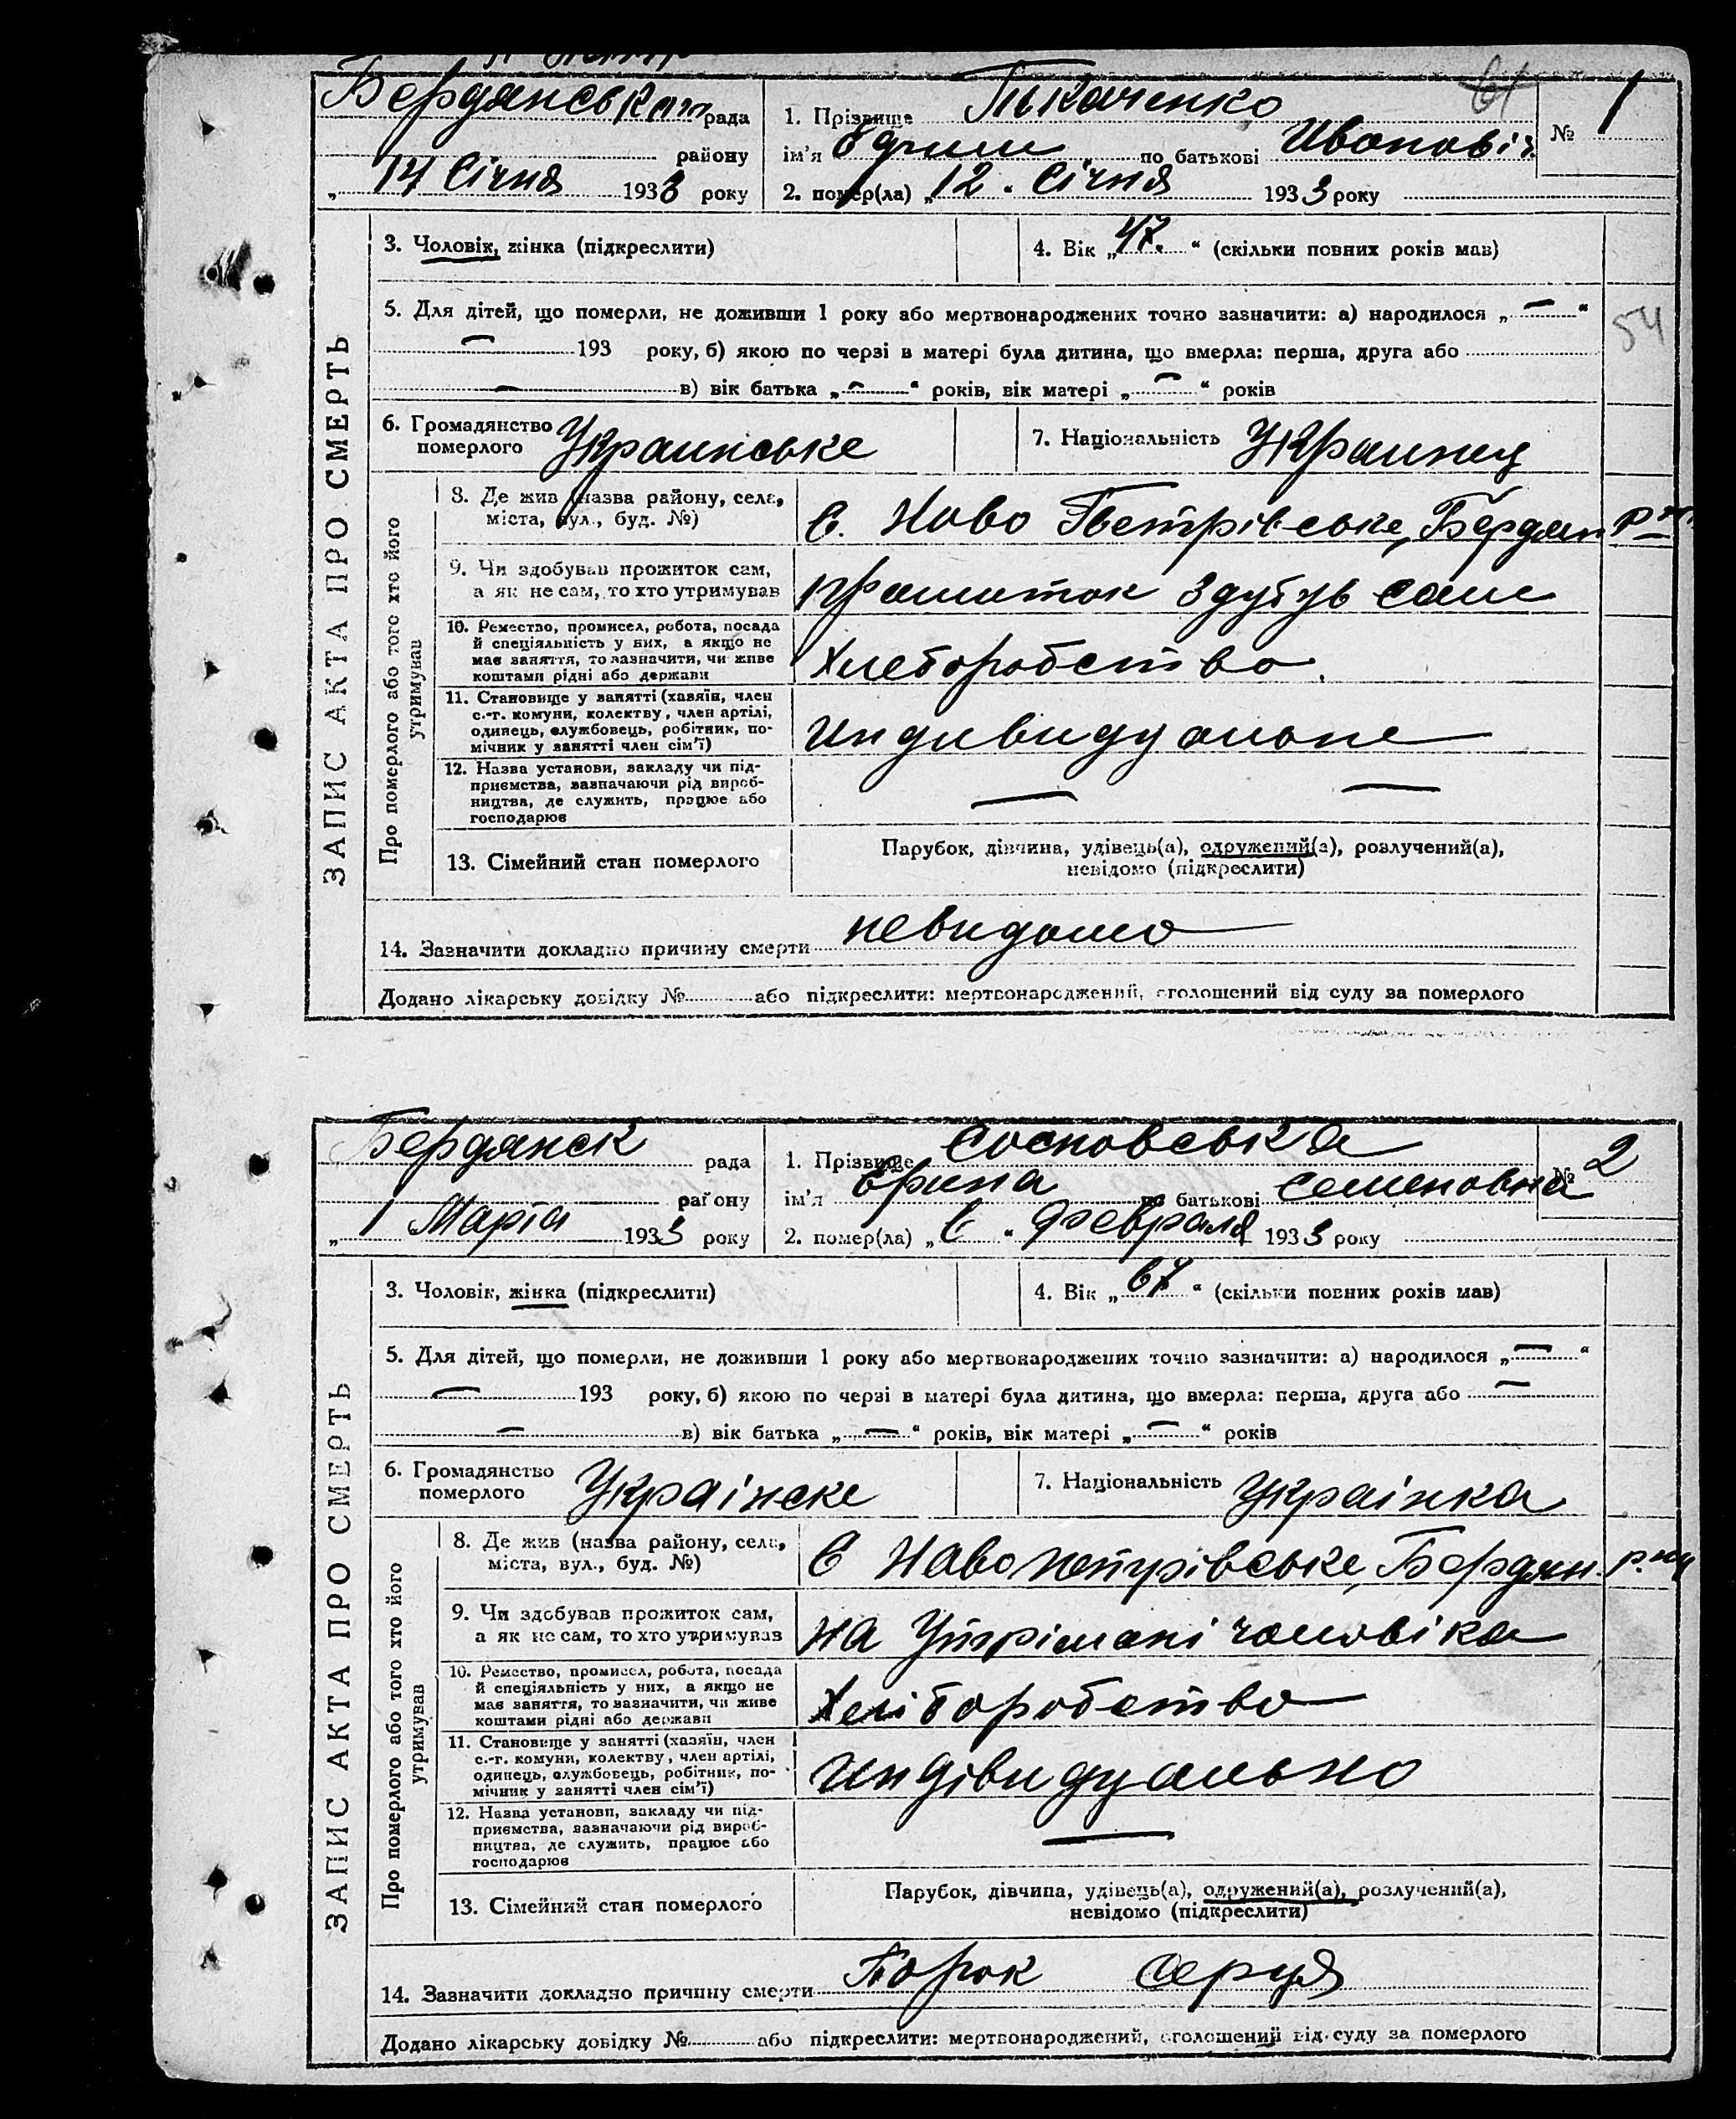 Бердянськ рада
1. Прізвище Ткаченко
№ 1
району
ім'я по батькові Ивановіч
„ 14 Січня 1933 року
2. помер(ла) „ 12 . Січня 1933 року
ЗАПИС АКТА ПРО СМЕРТЬ
3. Чоловік, жінка (підкреслити)
4. Вік „ 47. “ (скільки повних років мав)
5. Для дітей, що померли, не доживши 1 року або мертвонароджених точно зазначити: а) народилося „ — “
54
— 193 року, б) якою по черзі в матері була дитина, що вмерла: перша, друга або
— в) вік батька „ — “ років, вік матері „ — “ років
6. Громадянство
померлого Украинське
7. Національність Украинец
Про померлого або того хто його
утримував
8. Де жив (назва району, села,
міста, вул., буд. №)
С. Ново Петрівське, Бердян р-н.
9. Чи здобував прожиток сам,
а як не сам, то хто утримував
сам
10. Ремество, промисел, робота, посада
й спеціяльність у них, а якщо не
має заняття, то зазначити, чи живе
коштами рідні або держави
Хлеборобство.
11. Становище у занятті (хазяїн, член
с.-г. комуни, колектву, член артілі,
одинець, службовець, робітник, по-
мічник у занятті член сім'ї)
12. Назва установи, закладу чи під-
приємства, зазначаючи рід вироб-
ництва, де служить, працює або
господарює
— —
13. Сімейний стан померлого
Парубок, дівчина, удівець(а), одружений(а), розлучений(а),
невідомо (підкреслити)
14. Зазначити докладно причину смерти невидомо
Додано лікарську довідку № або підкреслити: мертвонароджений, оголошений від суду за померлого
Бердянск рада
1. Прізвище Сосновська
№ 2
району
ім'я Ерина по батькові Семеновна
„ 1 Марта 1933 року
2. помер(ла) „ . Февраля 1933 року
ЗАПИС АКТА ПРО СМЕРТЬ
3. Чоловік, жінка (підкреслити)
4. Вік „ 67 “ (скільки повних рохів мав)
5. Для дітей, що померли, не доживши 1 року або мертвонароджених точно зазначити: а) народилося „ — “
— 193 року, б) якою по черзі в матері була дитина, що вмерла: перша, друга або —
— в) вік батька „ — “ років, вік матері „ — “ років
6. Громадянство
померлого Украінске
7. Національність Украінка
Про померлого або того хто його
утримував
8. Де жив (назва району, села,
міста, вул., буд. №)
С Новопетрівське, Бердян. р-ну
9. Чи здобував прожиток сам,
а як не сам, то хто утримував
на Утрімані чоловіка
10. Ремество, промисел, робота, посада
й спеціяльність у них, а якщо не
має заняття, то зазначити, чи живе
коштами рідні або держави
Хліборобство
11. Становище у занятті (хазяїн, член
с.-г. комуни, колектву, член артілі,
одинець, службовець, робітник, по-
мічник у занятті член сім'ї)
Индівидуально
12. Назва установи, закладу чи під-
приємства, зазначаючи рід вироб-
ництва, де служить, працює або
господарює
—
13. Сімейний стан померлого
Парубок, дівчина, удівець(а), одружений(а), розлучений(а),
невідомо (підкреслити)
14. Зазначити докладно причину смерти Порок серця
Додано лікарську довідку № або підкреслити: мертвонароджений, оголошений від суду за померлого